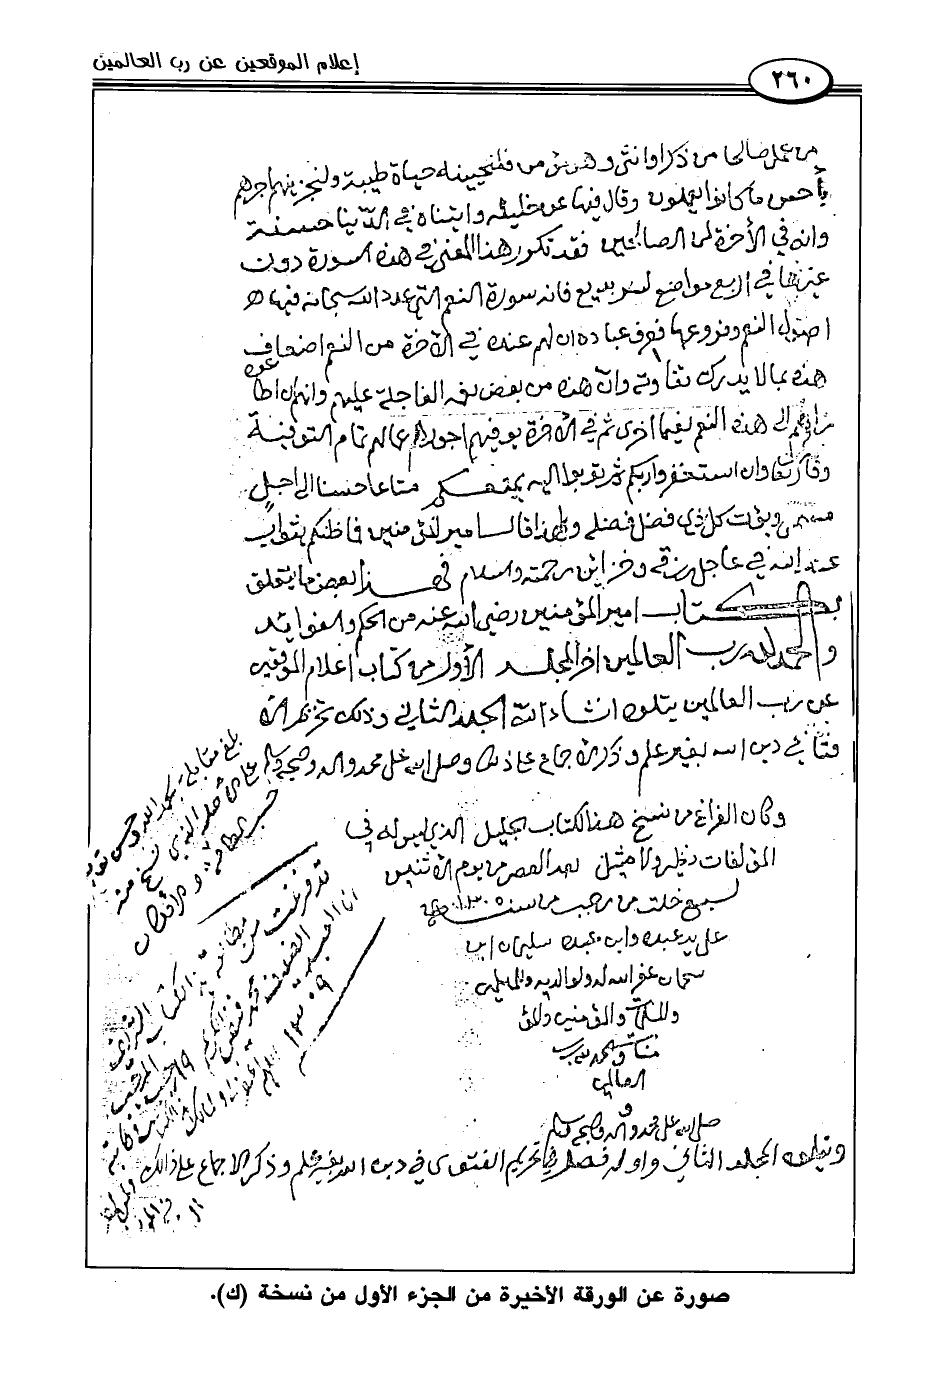 إعلام الموقعين عن رب العالمين
٢٦٠
من عمل صالحا من ذكر او انثى وهو مؤمن فلنحيينه حياة طيبة ولنجزينهم اجرهم
بأحسن ما كانوا يعملون وقال فيها عن خليله وايتناه في الدنيا حسنة
وانه في الآخرة لمن الصالحين فقد تكرر هذا المعنى في هذه السورة دون
غيرها في اربع مواضع لسر بديع فانه سورة النعم التي عدد الله سبحانه فيها
اصول النعم وفروعها فعرف عباده ان لهم عنده في الآخرة من النعم اضعاف
هذه بما لا يدرك تفاوته وان هذه من بعض نعمه العاجلة عليهم وانهم ان اطاعوه
زادهم الى هذه النعم نعما اخرى ثم في الآخرة يوفيهم اجور اعمالهم تمام التوفية
وقال تعالى وان استغفروا ربكم ثم توبوا اليه يمتعكم متاعا حسنا الى اجل
مسمى ويؤت كل ذي فضل فضله ولهذا قال امير المؤمنين فما ظنكم بثواب
عند الله في عاجل رزقه وخزاين رحمته والسلام فهذا بعض ما يتعلق
بكتاب امير المؤمنين رضي الله عنه من الحكم والفوائد
والحمد لله رب العالمين اخر المجلد الأول من كتاب اعلام الموقعين
عن رب العالمين يتلوه انشاء الله المجلد الثاني وذلك تحريم الا
فتا في دين الله بغير علم وذكر الاجماع على ذلك وصلى الله على محمد واله وصحبه وسلم
بلغ مقابلة بحمد الله وحسن توفيقه
على اصله الذي نسخ منه
حسب الطاقة
وكان الفراغ من نسخ هذا الكتاب الجليل الذي ليس له في
المؤلفات نظير ولا مثيل بعد العصر من يوم الاثنين
لسبع خلت من رجب من سنة ١٣٠٥
على يد عبده وابن عبده سليمان ابن
سحمان غفر الله له ولوالديه وللمسلمين
والمسلمات والمؤمنين والمؤ
منات والحمد لله رب
العالمين
و
صلى الله على محمد واله وصحبه وسلم
قد فرغت من مطالعة
انا العبد الفقير
١٣٠٩
ويليه المجلد الثاني واوله فصل في تحريم الفتوى في دين الله بغير علم وذكر الاجماع على ذلك
صورة عن الورقة الأخيرة من الجزء الأول من نسخة (ك).